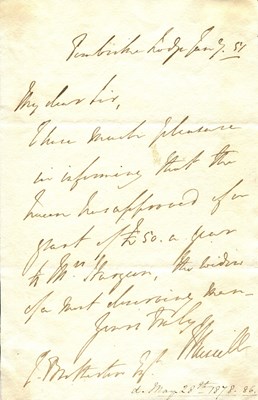 Pembroke Lodge Jany 7. 51
My dear Sir,
I have much pleasure
in informing that the
Queen has approved of a
grant of £50. a year
to Mrs Sturgeon, the widow
of a most deserving man.
Yours truly
J Russell
J. Brotherton Esq.
d. May 28th 1878. 86.